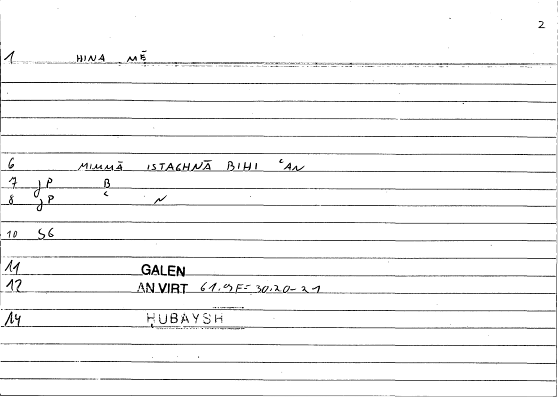 2
1 HINA MĒ
6 MIMMĀ ISTAGHNĀ BIHI ʿAN
7 jP B
8 jP ʿ N
10 S6
11 GALEN
12 AN VIRT 61.9F= 30.20-21
14 ḤUBAYSH